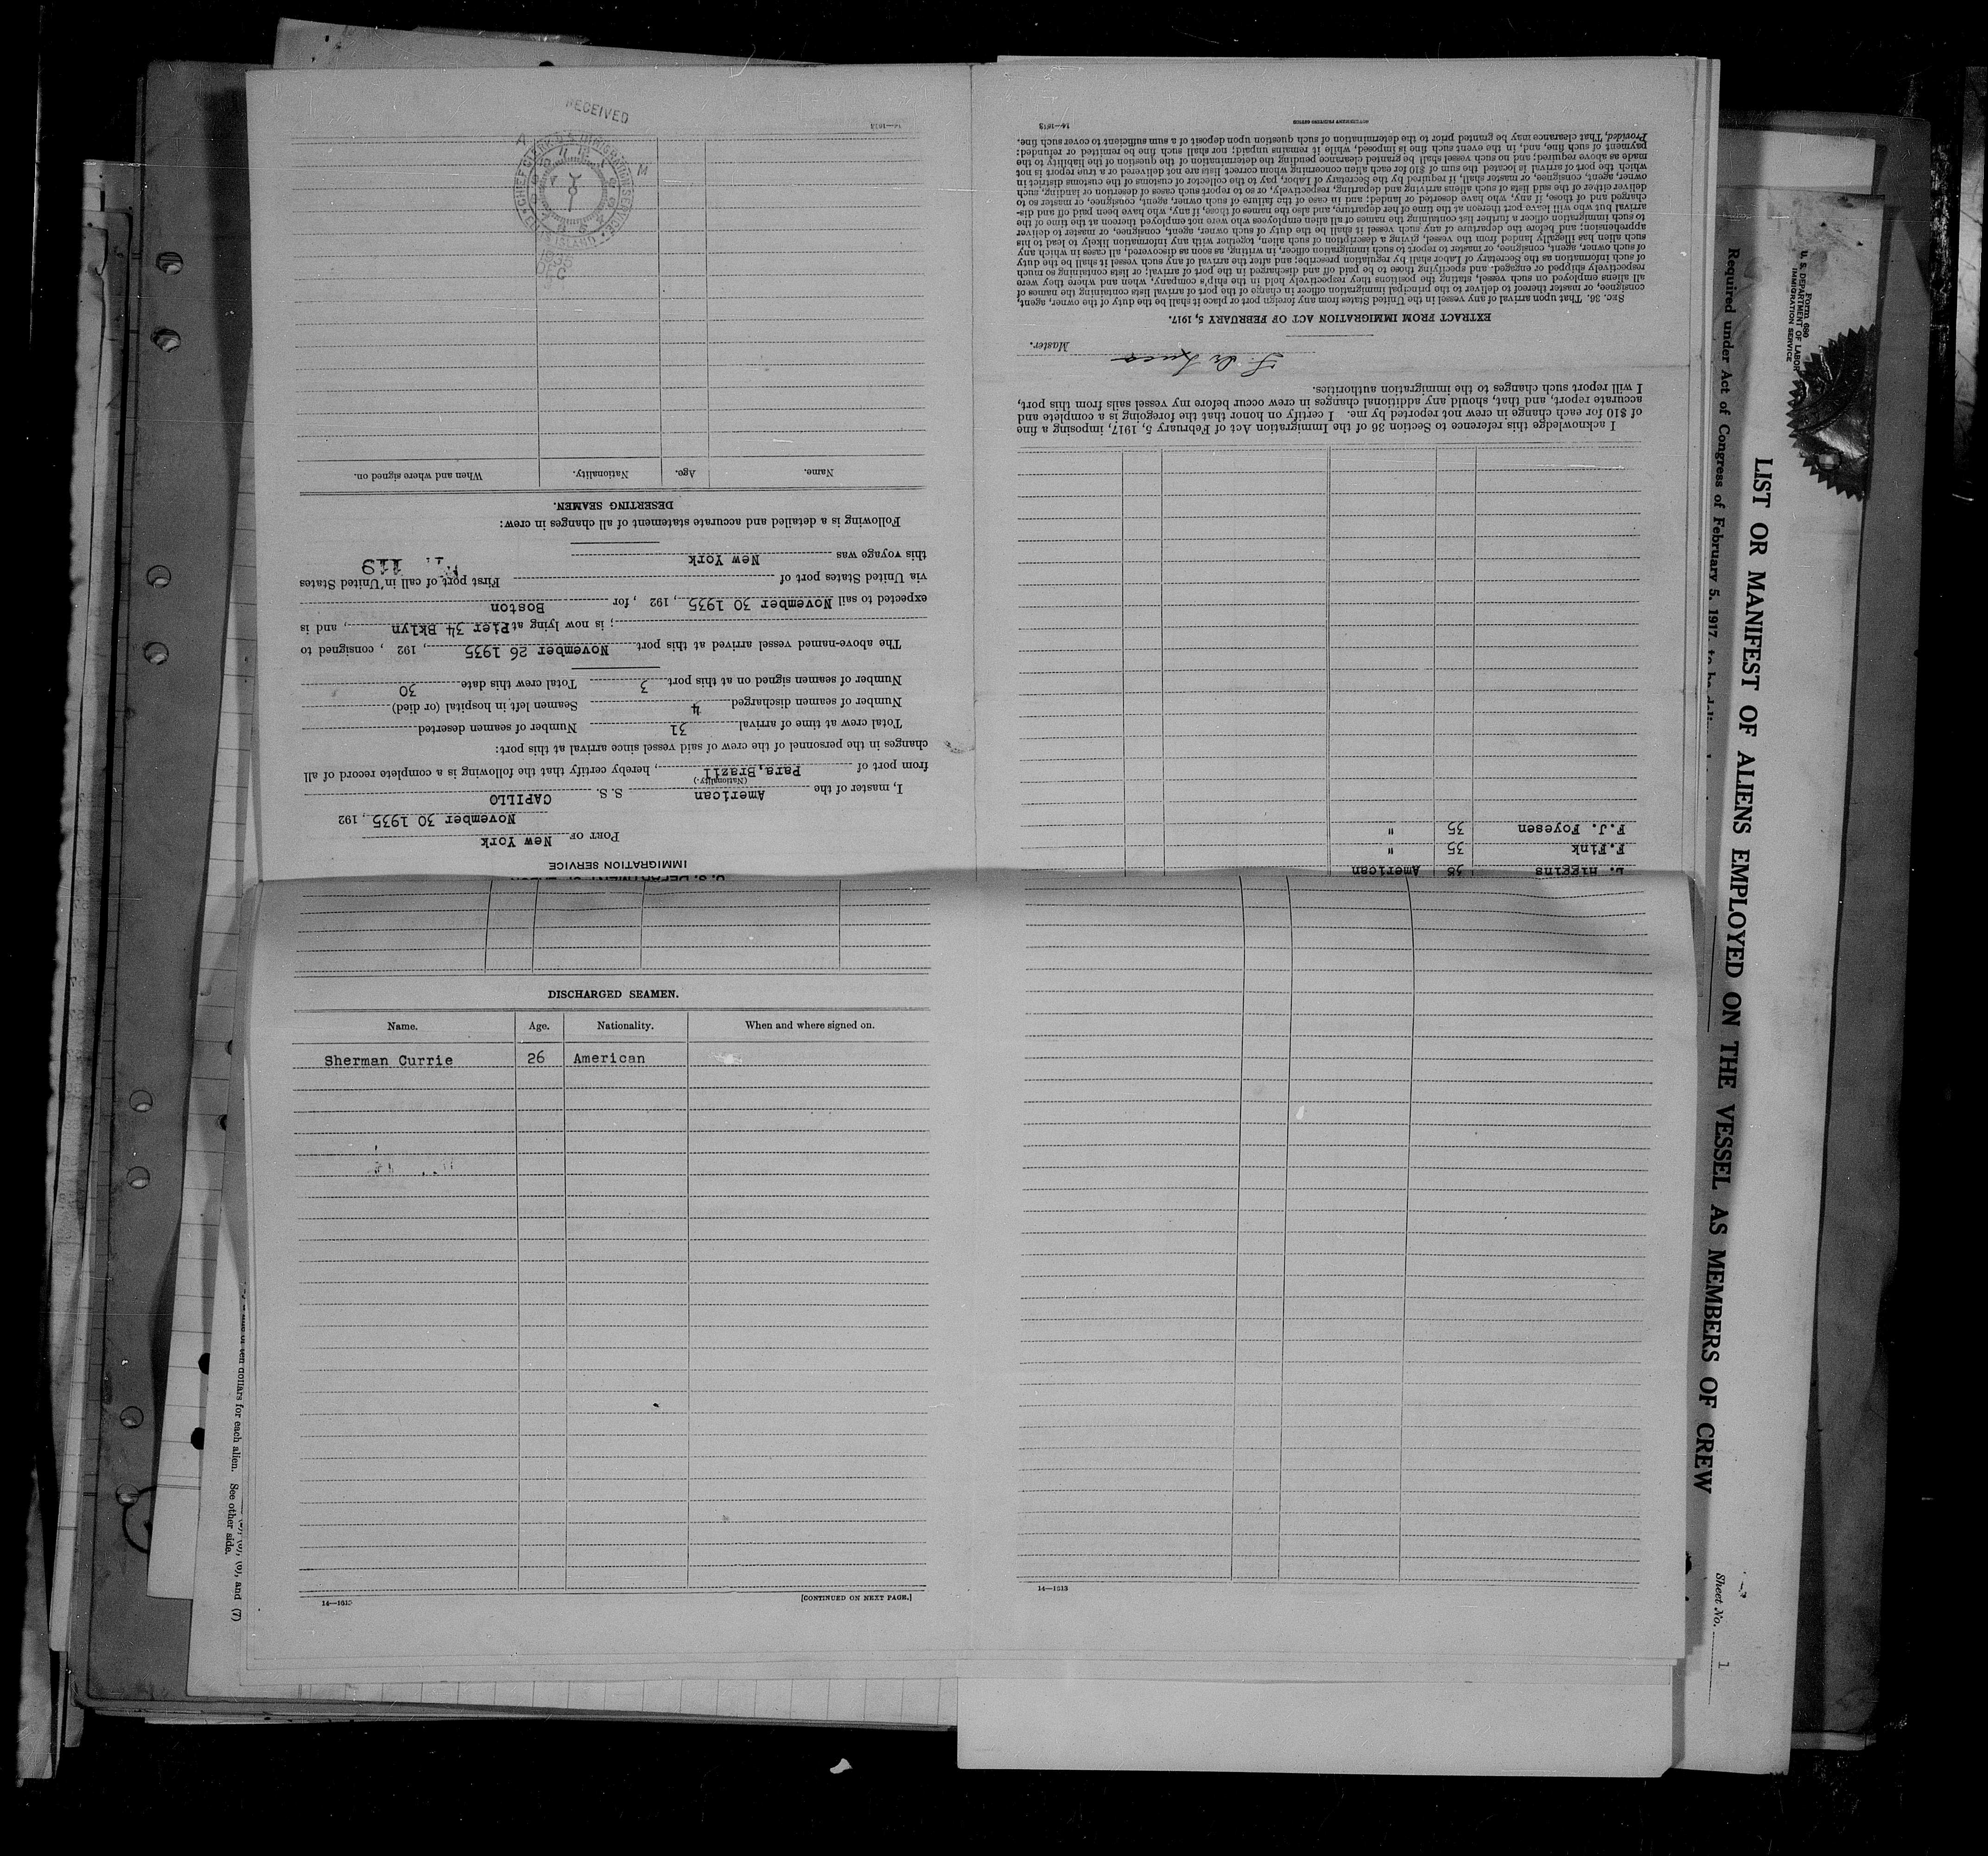 U.S. DEPARTMENT OF LABOR
IMMIGRATION SERVICE
PORT OF New York
November 30 1935, 192
I, master of the American S. S. CAPILLO
(Nationality.)
from port of Para, Brazil, hereby certify that the following is a complete record of all
changes in the personnel of the crew of said vessel since arrival at this port:
Total crew at time of arrival 31 Number of seamen deserted
Number of seamen discharged 4 Seamen left in hospital (or died)
Number of seamen signed on at this port 3 Total crew this date 30
The above-named vessel arrived at this port November 26 1935, 192 , consigned to
; is now lying at Pier 34 Bklyn, and is
expected to sail November 30 1935, 192 , for Boston
via United States port of First port of call in United States
this voyage was New York
119
Following is a detailed and accurate statement of all changes in crew:
DESERTING SEAMEN.
Name. Age. Nationality. When and where signed on.
14—1613
RECEIVED
A M
CHIEF CLERK, U.S. IMMIGRATION SERVICE,
ELLIS ISLAND
1935
DEC
L. Higgins 38 American
F.Fink 35 "
F.J. Foyesen 35 "
I acknowledge this reference to Section 36 of the Immigration Act of February 5, 1917, imposing a fine
of $10 for each change in crew not reported by me. I certify on honor that the foregoing is a complete and
accurate report, and that, should any additional changes in crew occur before my vessel sails from this port,
I will report such changes to the immigration authorities.
Master.
EXTRACT FROM IMMIGRATION ACT OF FEBRUARY 5, 1917.
SEC. 36. That upon arrival of any vessel in the United States from any foreign port or place it shall be the duty of the owner, agent,
consignee, or master thereof to deliver to the principal immigration officer in charge of the port of arrival lists containing the names of
all aliens employed on such vessel, stating the positions they respectively hold in the ship's company, when and where they were
respectively shipped or engaged, and specifying those to be paid off and discharged in the port of arrival; or lists containing so much
of such information as the Secretary of Labor shall by regulation prescribe; and after the arrival of any such vessel it shall be the duty
of such owner, agent, consignee, or master to report to such immigration officer, in writing, as soon as discovered, all cases in which any
such alien has illegally landed from the vessel, giving a description of such alien, together with any information likely to lead to his
apprehension; and before the departure of any such vessel it shall be the duty of such owner, agent, consignee, or master to deliver
to such immigration officer a further list containing the names of all alien employees who were not employed thereon at the time of the
arrival but who will leave port thereon at the time of her departure, and also the names of those, if any, who have been paid off and dis-
charged and of those, if any, who have deserted or landed; and in case of the failure of such owner, agent, consignee, or master so to
deliver either of the said lists of such aliens arriving and departing, respectively, or so to report such cases of desertion or landing, such
owner, agent, consignee, or master, shall, if required by the Secretary of Labor, pay to the collector of customs of the customs district in
which the port of arrival is located the sum of $10 for each alien concerning whom correct lists are not delivered or a true report is not
made as above required; and no such vessel shall be granted clearance pending the determination of the question of the liability to the
payment of such fine, and, in the event such fine is imposed, while it remains unpaid; nor shall such fine be remitted or refunded:
Provided, That clearance may be granted prior to the determination of such question upon deposit of a sum sufficient to cover such fine.
14—1613
GOVERNMENT PRINTING OFFICE
DISCHARGED SEAMEN.
Name. Age. Nationality. When and where signed on.
Sherman Currie 26 American
14—1613 [CONTINUED ON NEXT PAGE.]
14—1613
Form 680
U. S. DEPARTMENT OF LABOR
IMMIGRATION SERVICE
LIST OR MANIFEST OF ALIENS EMPLOYED ON THE VESSEL AS MEMBERS OF CREW
Required under Act of Congress of February 5, 1917, to be
Sheet No. 1
ten dollars for each alien. See other side.
(6), and (7)